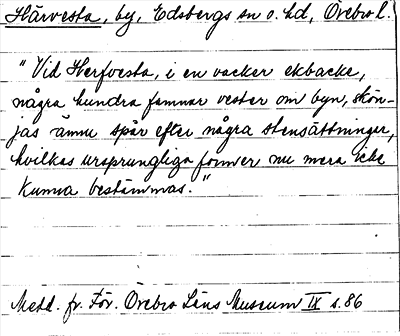 Härvesta, by, Edsbergs sn o. hd, Örebro l.
"Vid Herfvesta, i en vacker ekbacke,
några hundra famnar vester om byn, skön-
jas ännu spår efter några stensättninger,
hvilkas ursprungliga former nu mera icke
kunna bestämmas."
Medd. fr. För. Örebro Läns Museum IX s. 86